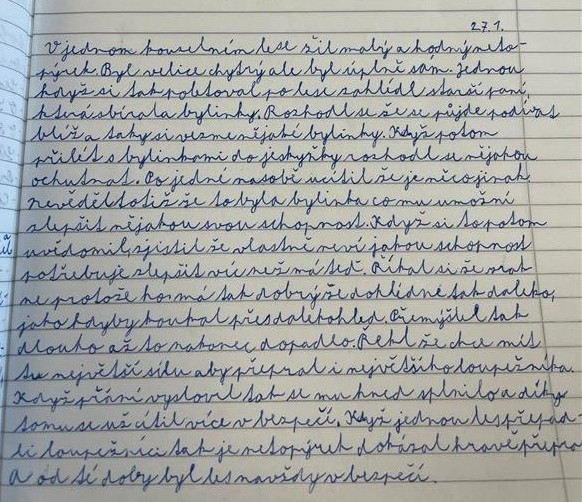 27.1.
V jednom kouzelném lese žil malý a hodný neto-
pýrek. Byl velice chytrý ale byl úplně sám. Jednou
když si tak poletoval po lese zahlédl starší paní,
která sbírala bylinky. Rozhodl se že se půjde podívat
blíž a taky si vezme nějaké bylinky. Když potom
přilét s bylinkami do jeskyňky rozhodl se nějakou
ochutnat. Po jedné na sobě ucítil že je něco jinak
nevěděl totiž že to byla bylinka co mu umožní
zlepšit nějakou svou schopnost. Když si to potom
uvědomil, zjistil že vlastně neví jakou schopnost
potřebuje zlepšit víc než má teď. Říkal si že zrak
ne protože ho má tak dobrý že dohlédne tak daleko,
jako kdyby koukal přes dalekohled. Přemýšlel tak
dlouho až to nakonec dopadlo. Řekl že chce mít
tu největší sílu aby přepral i největšího loupežníka.
Když přání vyslovil tak se mu hned splnilo a díky
tomu se už cítil více v bezpečí. Když jednou les přepad-
li loupežníci tak je netopýrek dokázal hravě přepra
A od té doby byl les navždy v bezpečí.